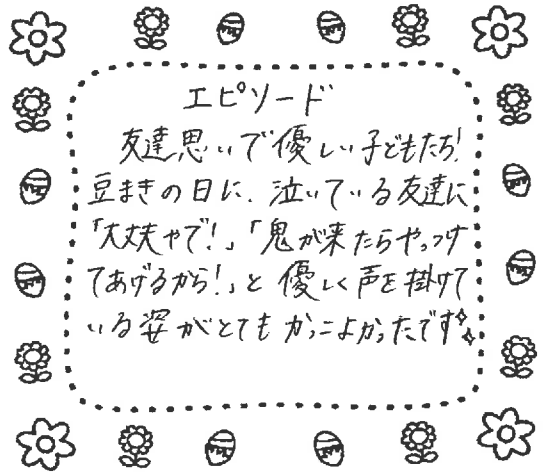 エピソード
友達思いで優しい子どもたち!
豆まきの日に、泣いている友達に
「大丈夫やで!」「鬼が来たらやっつけ
てあげるから!」と優しく声を掛けて
いる姿がとてもかっこよかったです